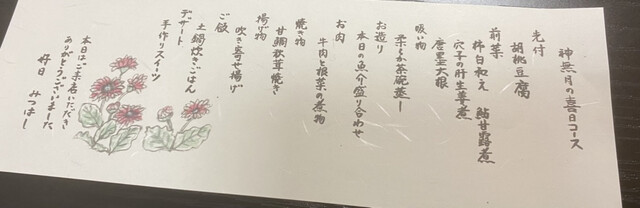 神無月の喜日コース
先付
胡桃豆腐
前菜
柿白和え　鮎甘露煮
穴子の肝生姜煮
唐墨大根
吸い物
柔らか茶碗蒸し
お造り
本日の魚介盛り合わせ
お肉
牛肉と根菜の煮物
焼き物
甘鯛松茸焼き
揚げ物
吹き寄せ揚げ
ご飯
土鍋炊きごはん
デザート
手作りスイーツ
本日はご来店いただき
ありがとうございました
好日　みつはし